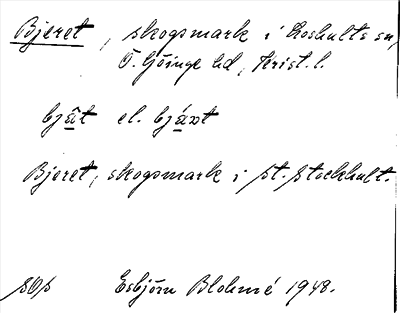 Bjeret, skogsmark i Loshults sn,
Ö. Göinge hd, Krist. l.
bjät el. bjáxt
Bjeret, skogsmark i St. Stockhult.
sös Esbjörn Blohmé 1948.